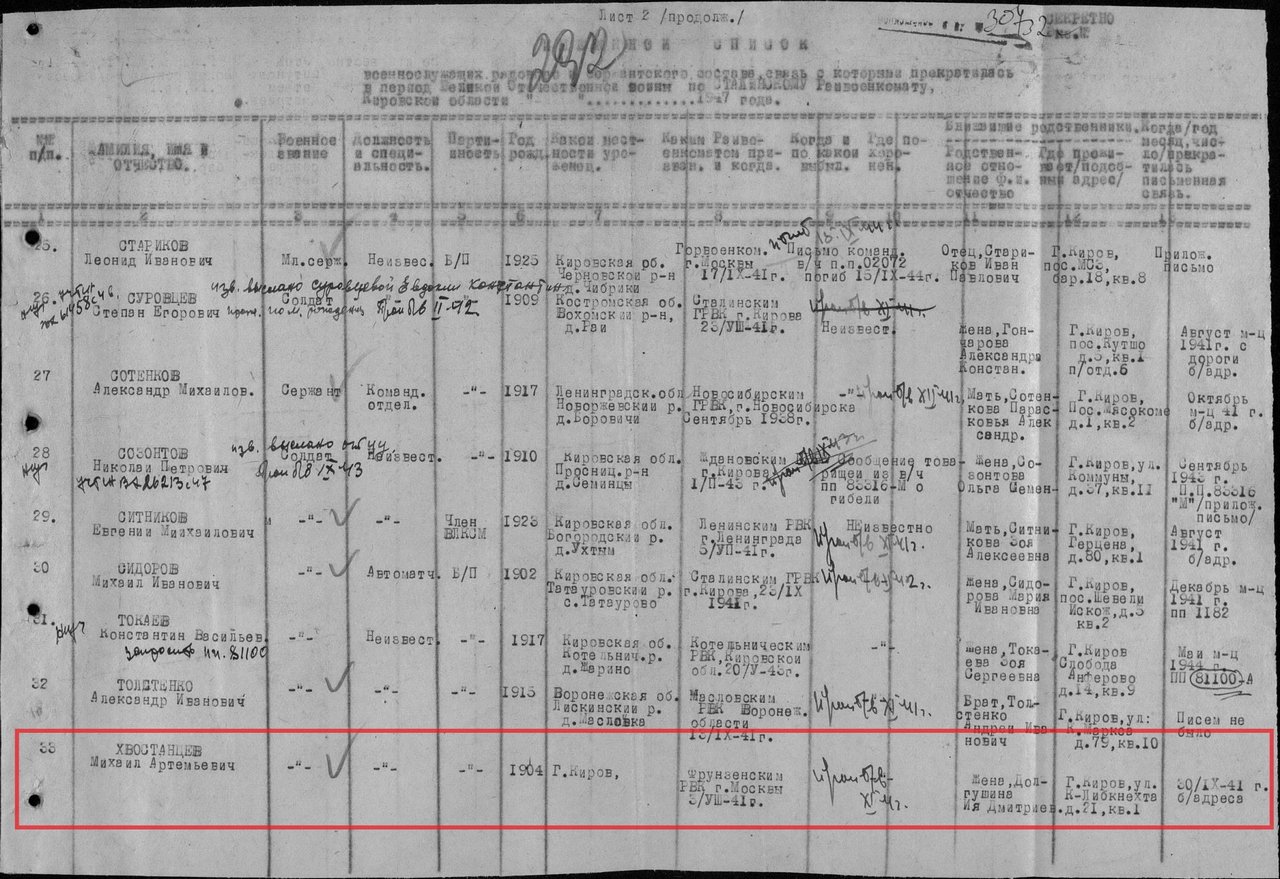 Лист 2 /продолж./
307
СЕКРЕТНО
292
ИМЕННОЙ СПИСОК
военнослужащих рядового и сержантского состава, связь с которыми прекратилась
в период Великой Отечественной войны по СТАЛИНСКОМУ Райвоенкомату,
Кировской области " "..............1947 года.
№№ п/п.
ФАМИЛИЯ, ИМЯ И ОТЧЕСТВО.
Военное звание
Должность и специальность.
Партийность
Год рожд.
Какой местности уроженец.
Каким Райвоенкоматом призван. и когда.
Когда и по какой выбыл.
Где похоронен.
Ближайшие родственники.
Родственное отношение Ф.И. отчество
Где проживает/подробный адрес/
Когда/год месяц, число/прекратилась письменная связь.
1 2 3 4 5 6 7 8 9 10 11 12 13
25. СТАРИКОВ
Леонид Иванович Мл.серж. Неизвес. Б/П 1925
Кировская об.
Черновской р-н
д.Чибрики
Горвоенком.
г.Москвы
17/IX-41г.
погиб 13-IX-44г.
Письмо команд.
в/ч п.п.02072
погиб 13/IX-44г.
Отец,Стари-
ков Иван
Павлович
Г.Киров,
пос.МОЗ,
бар.18,кв.8
Прилож.
письмо
изв. выслано Суровцевой Евдокии Константин.
26. СУРОВЦЕВ
Степан Егорович Солдат 1909
проп. б/в II-42
Костромская об.
Вохомский р-н,
д.Раи
Сталинским
ГРВК г.Кирова
23/УШ-41г.
Неизвест.
Жена,Гон-
чарова
Александра
Констан.
Г.Киров,
пос.Кутшо
д.5,кв.1
п/отд.6
Август м-ц
1941г. с
дороги
б/адр.
27 СОТЕНКОВ
Александр Михаилов. Сержант Команд.
отдел.
-"- 1917
Ленинградск.обл
Новоржевский р.
д.Боровичи
Новосибирским
ГРВК,г.Новосибирска
Сентябрь 1938г.
-"- проп б/в XII-41г.
Мать,Сотен-
кова Парас-
ковья Алек
сандр.
Г.Киров,
Пос.Мясокомб
д.1,кв.2
Октябрь
м-ц 41 г.
б/адр.
28 СОЗОНТОВ
Николай Петрович Солдат Неизвест. -"- 1910
изв. выслано
проп б/в IX-43
Кировская обл.
Просниц.р-н
д.Семинцы
Ждановским
г.Кирова
1/П-43 г.
Сообщение това-
рищей из в/ч
пп 83316-М о
гибели
Жена,Со-
зонтова
Ольга Семен-
Г.Киров,ул.
Коммуны,
д.37,кв.II
Сентябрь
1943 г.
П.П.83316
"М"/прилож.
письмо/
29. СИТНИКОВ
Евгений Миихаилович -"- -"- Член
ВЛКСМ
1923
Кировская обл.
Богородский р.
д.Ухтым
Ленинским РВК
г.Ленинграда
3/УП-41г.
НЕизвестно
проп б/в XI-41г.
Мать,Ситни-
кова Зоя
Алексеевна
Г.Киров,
Герцена,
д.80,кв.1
Август
1941 г.
б/адр.
30 СИДОРОВ
Михаил Иванович -"- Автоматч. Б/П 1902
Кировская обл.
Татауровский р.
с.Татаурово
Сталинским ГРВК
г.Кирова,23/IX
1941г.
Жена,Сидо-
рова Мария
Ивановна
Г.Киров,
пос.Шевели
Искож,д.5
кв.2
Декабрь м-ц
1941 г.
пп 1182
31. ТОКАЕВ
Константин Васильев. -"- Неизвест. -"- 1917
запросить пп. 81100
Кировская об.
Котельнич.р.
д.Жарино
Котельническим
РВК,Кировской
обл.20/У-43г.
-"-
Жена,Тока-
ева Зоя
Сергеевна
Г.Киров
Слобода
Анферово
д.14,кв.9
Май м-ц
1944 г.
ПП 81100-А
32 ТОЛСТЕНКО
Александр Иванович -"- -"- -"- 1915
Воронежская об.
Лискинский р.
д.Масловка
Масловским
РВК Воронеж.
области
13/IX-41г.
проп б/в XI-41г.
Брат,Тол-
стенко
Андрей Ива
нович
Г.Киров,ул:
К.Маркса
д.79,кв.10
Писем не
было
33 ХВОСТАНЦЕВ
Михаил Артемьевич -"- -"- -"- 1904 Г.Киров,
Фрунзенским
РВК г.Москвы
3/УШ-41г.
проп б/в
XI-41г.
Жена,Дол-
гушина
Ия Дмитриев.
Г.Киров,ул.
К-Либкнехта
д.21,кв.1
30/IX-41 г.
б/адреса